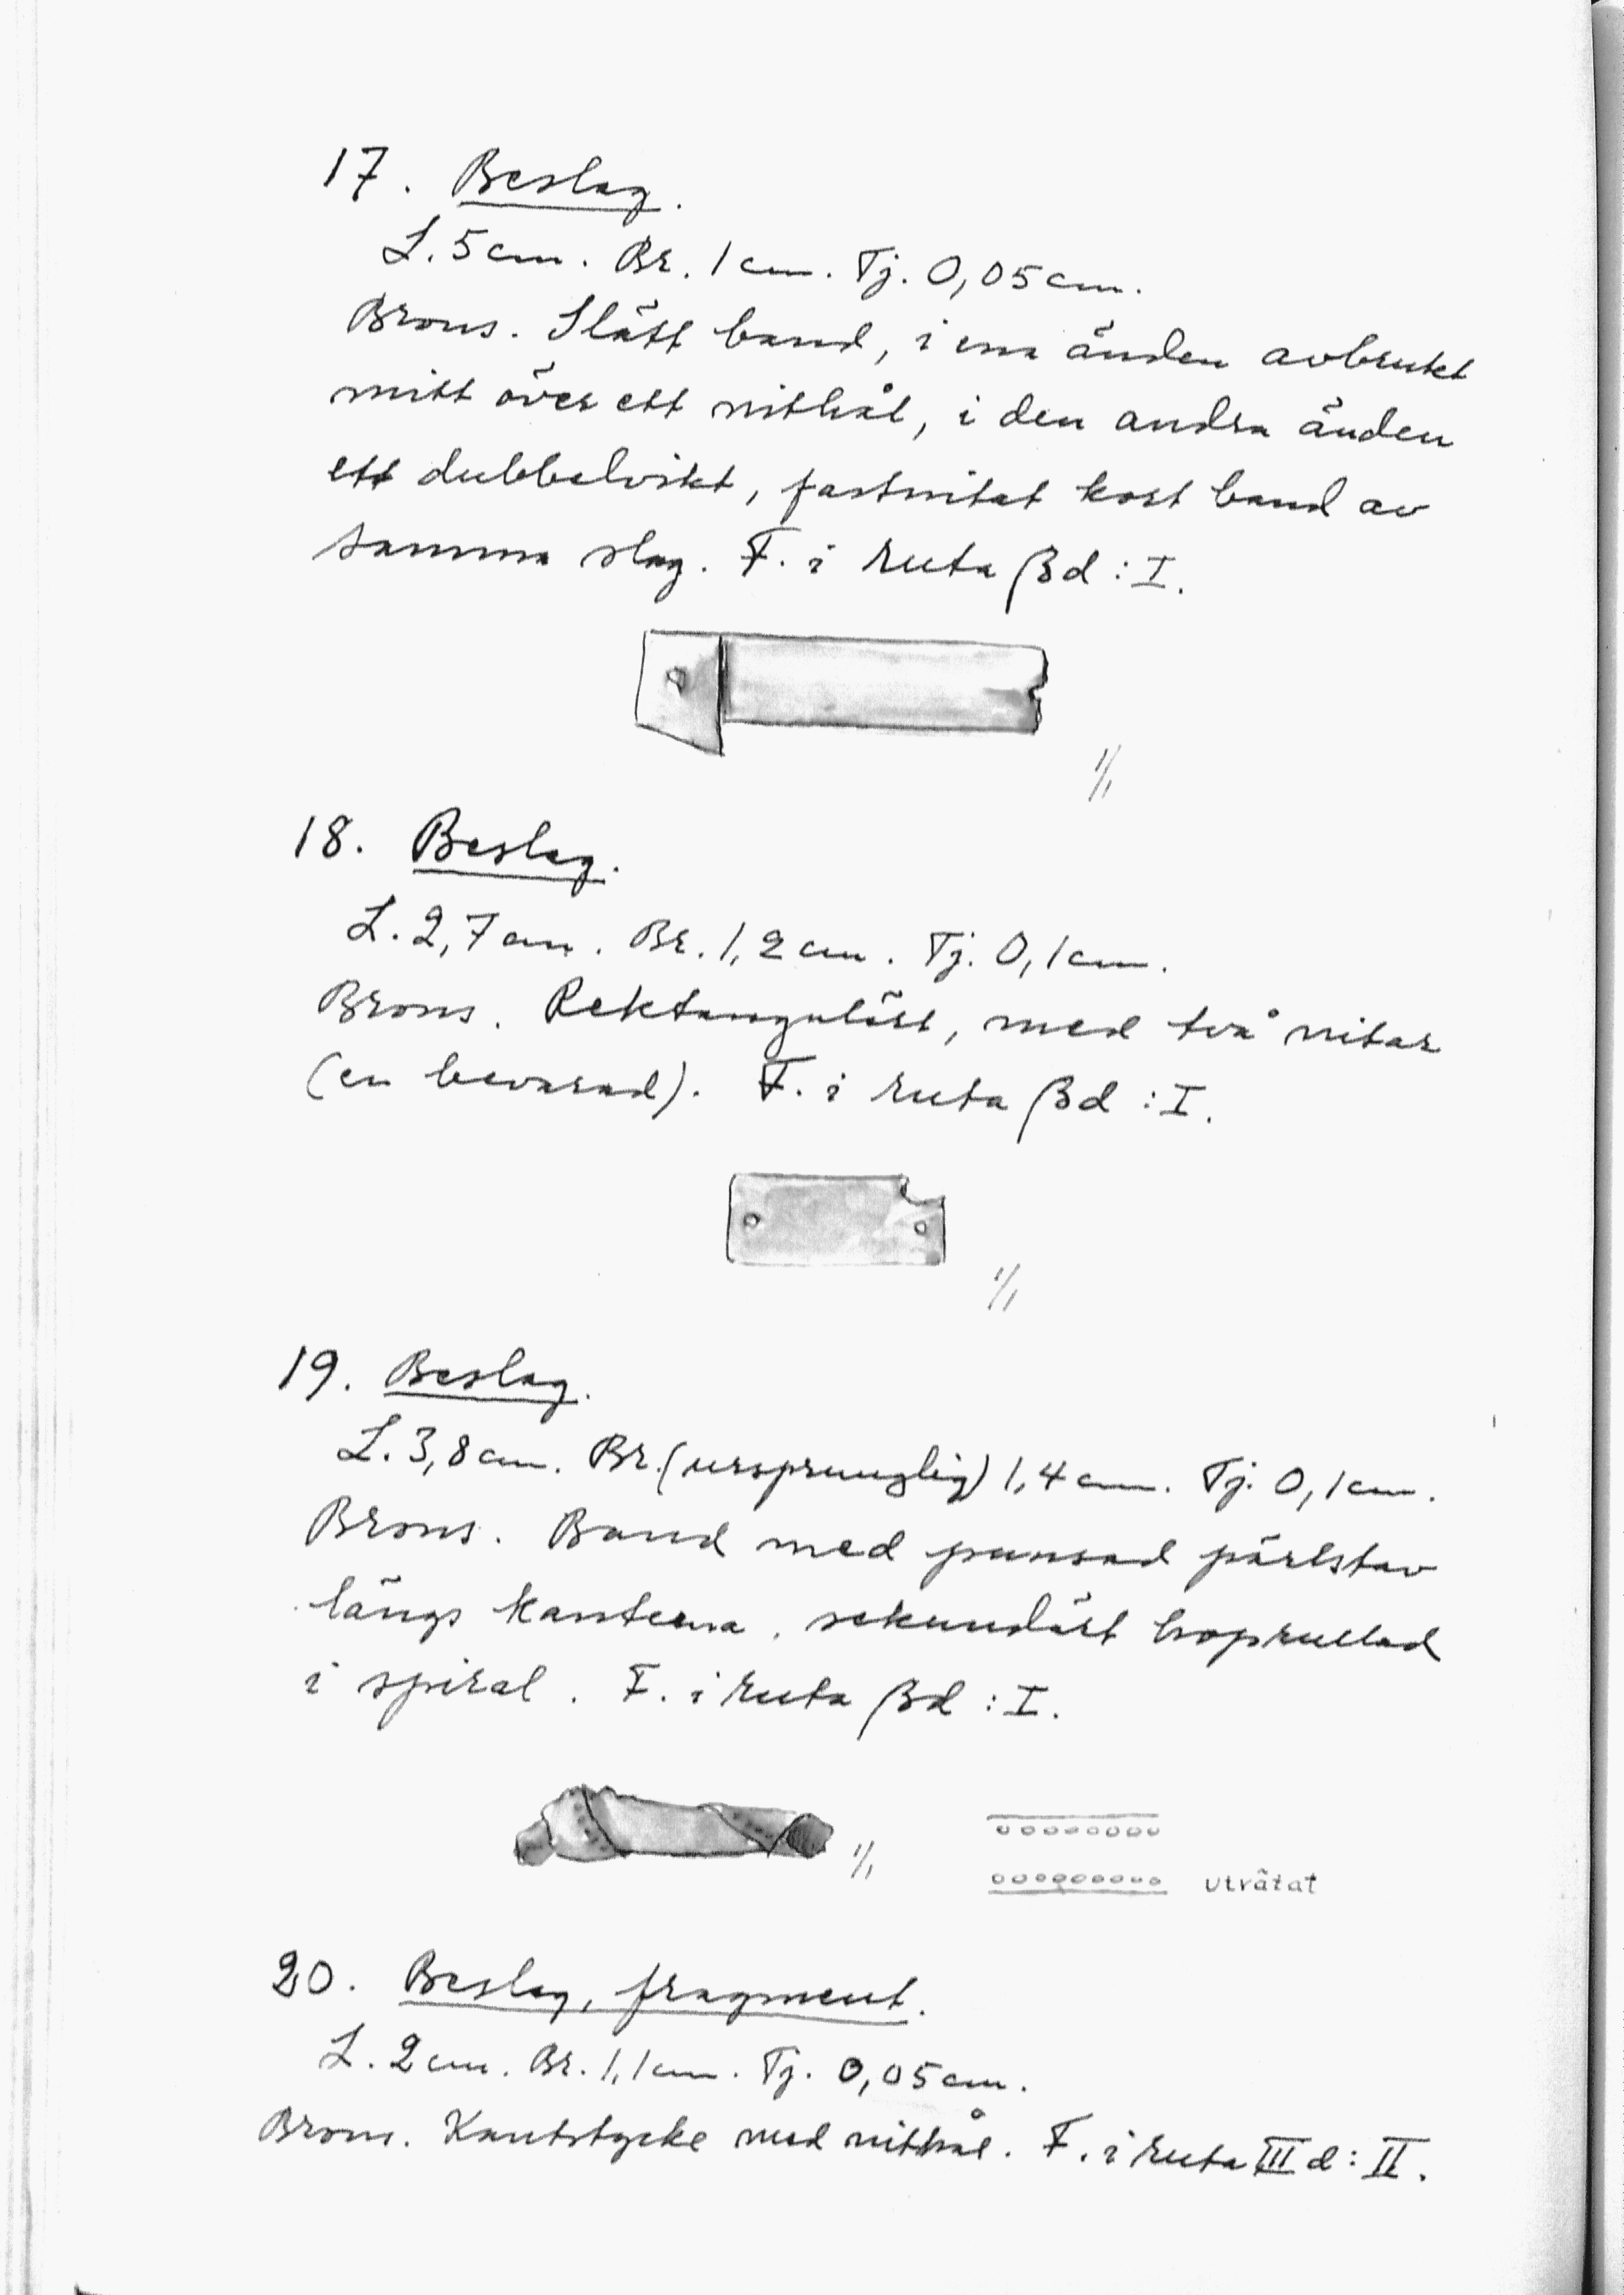 17. Beslag.
L. 5 cm. Br. 1 cm. Tj. 0,05 cm.
Brons. Slätt band, i ena änden avbrutet
mitt över ett nithål, i den andra änden
ett dubbelvikt, fastnitat kort band av
samma slag. F. i ruta βd : I.
1/1
18. Beslag.
L. 2,7 cm. Br. 1,2 cm. Tj. 0,1 cm.
Brons. Rektangulärt, med två nitar
(en bevarad). F. i ruta βd : I.
1/1
19. Beslag.
L. 3,8 cm. Br. (ursprunglig) 1,4 cm. Tj. 0,1 cm.
Brons. Band med punsad pärlstav
längs kanterna, sekundärt hoprullad
i spiral. F. i ruta βd : I.
1/1
uträtat
20. Beslag, fragment.
L. 2 cm. Br. 1,1 cm. Tj. 0,05 cm.
Brons. Kantstycke med nithål. F. i ruta III d : II.